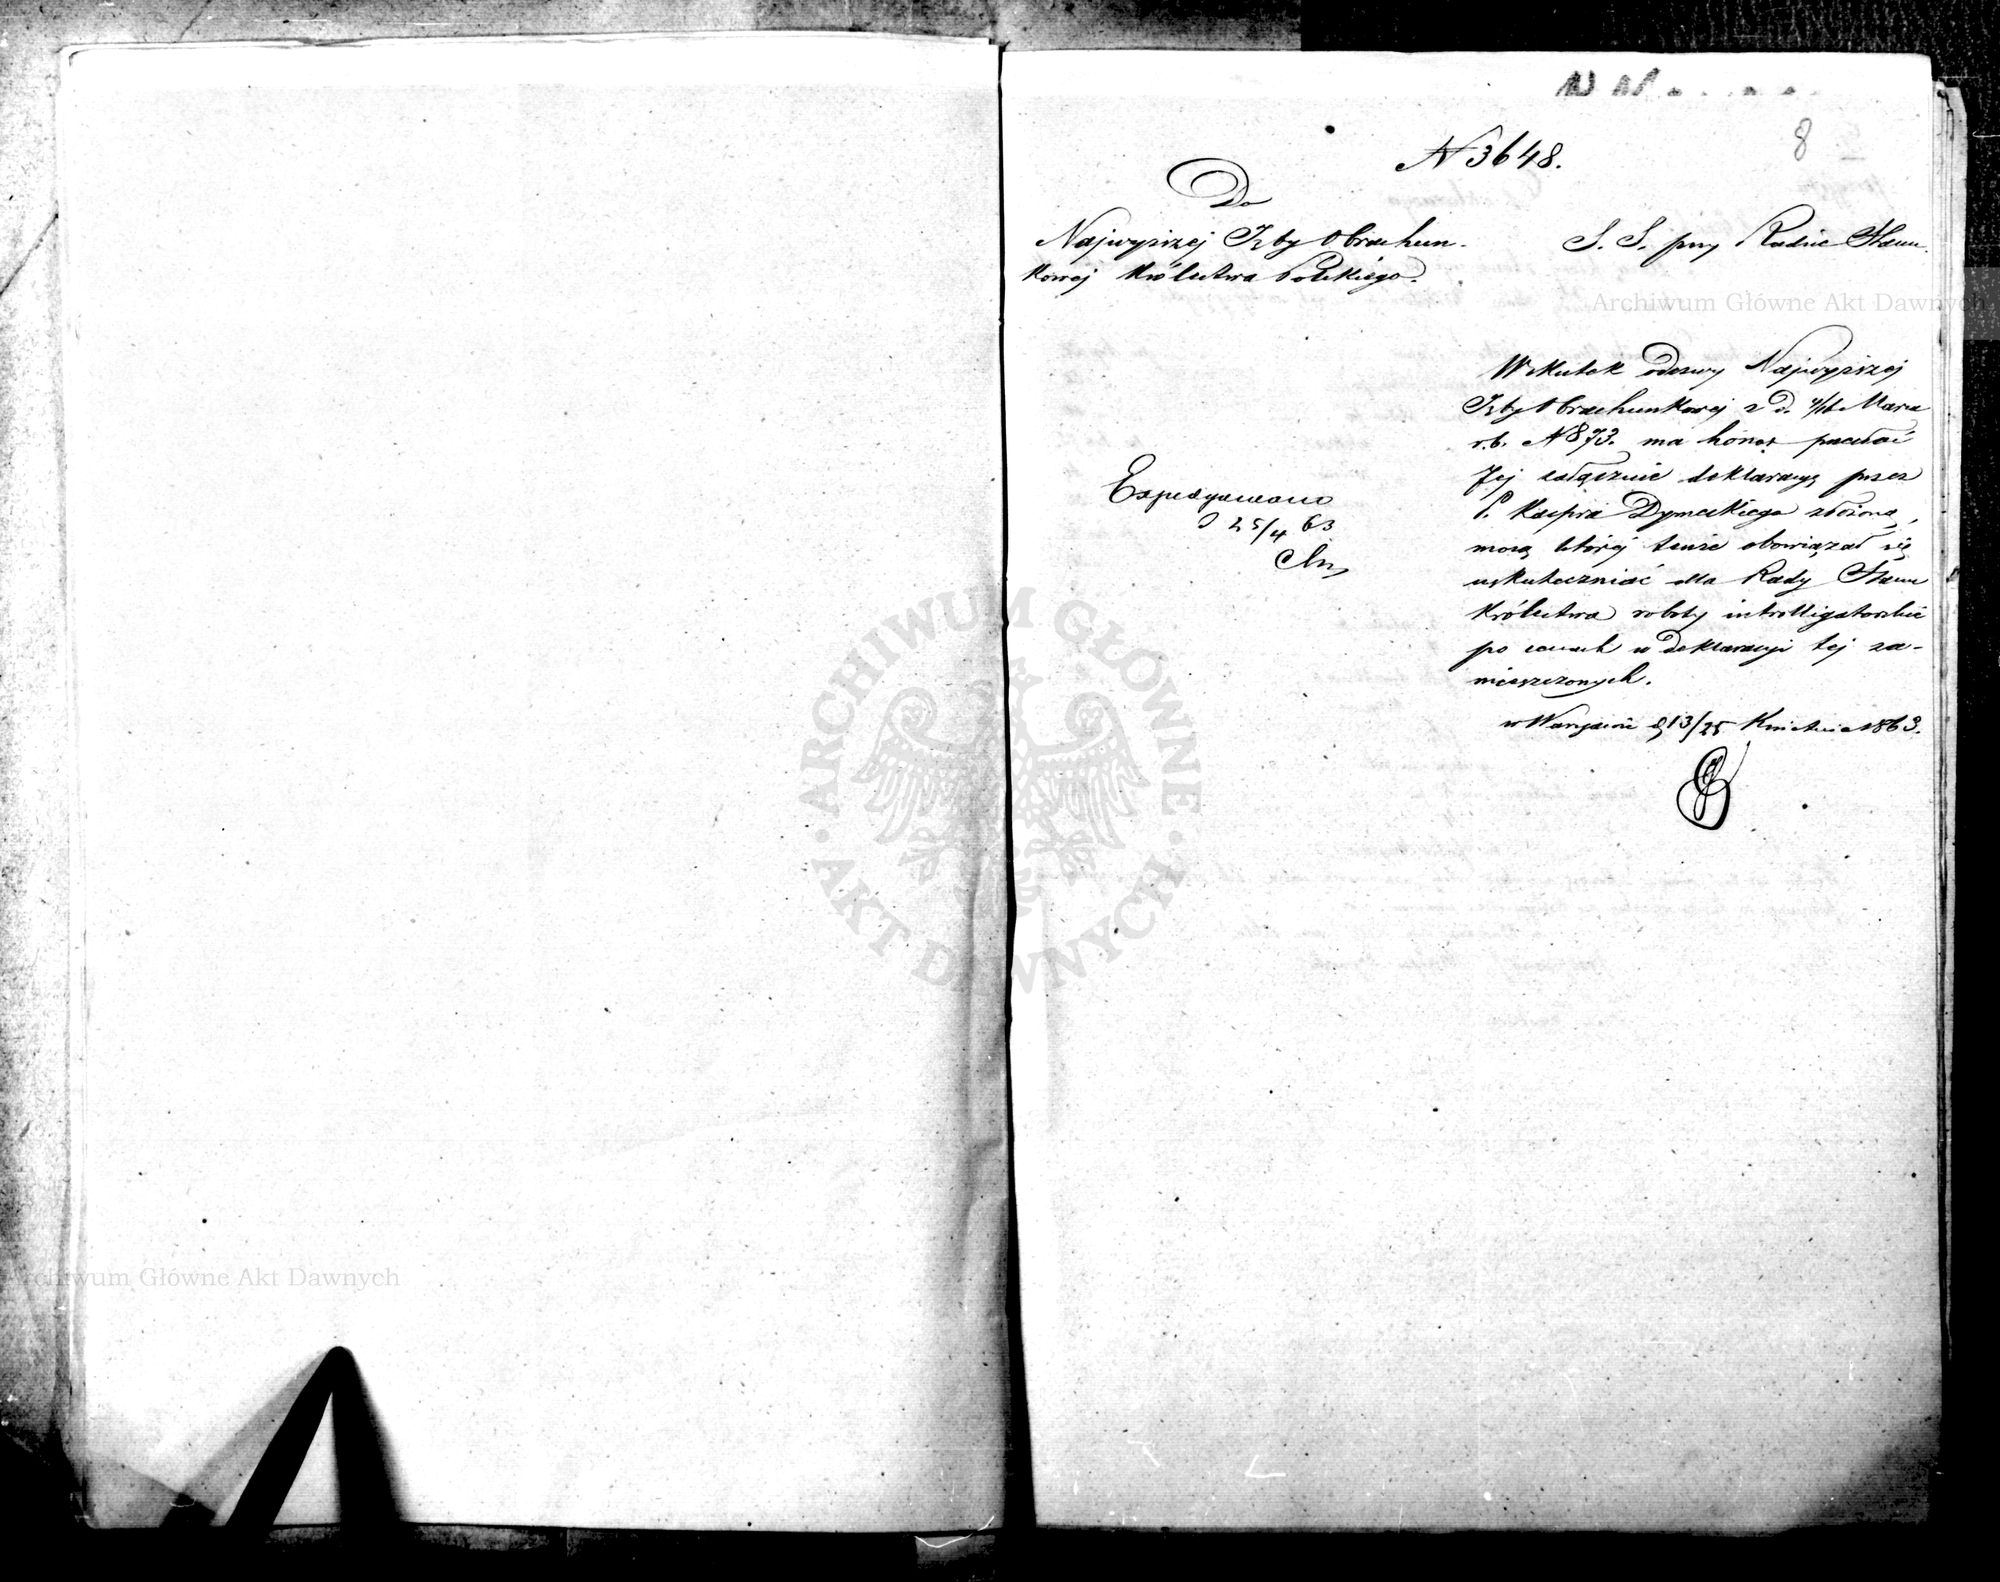 8
N 3648.
Do
Najwyższej Izby Obrachun-
kowej Królestwa Polskiego.
S. S. przy Radzie Stanu.
Wskutek odezwy Najwyższej
Izby Obrachunkowej z d. 4/16 Marca
r.b. N 873. ma honor przesłać
Jej załącznie deklaracyę przez
P. Kacpra Dymeckiego złożoną,
mocą której tenże obowiązał się
uskuteczniać dla Rady Stanu
Królestwa roboty introlligatorskie
po cenach w deklaracyi tej za-
mieszczonych.
w Warszawie d 13/25 Kwietnia 1863.
Expedyowano
d 25/4 63
Archiwum Główne Akt Dawnych
ARCHIWUM GŁÓWNE AKT DAWNYCH
Archiwum Główne Akt Dawnych